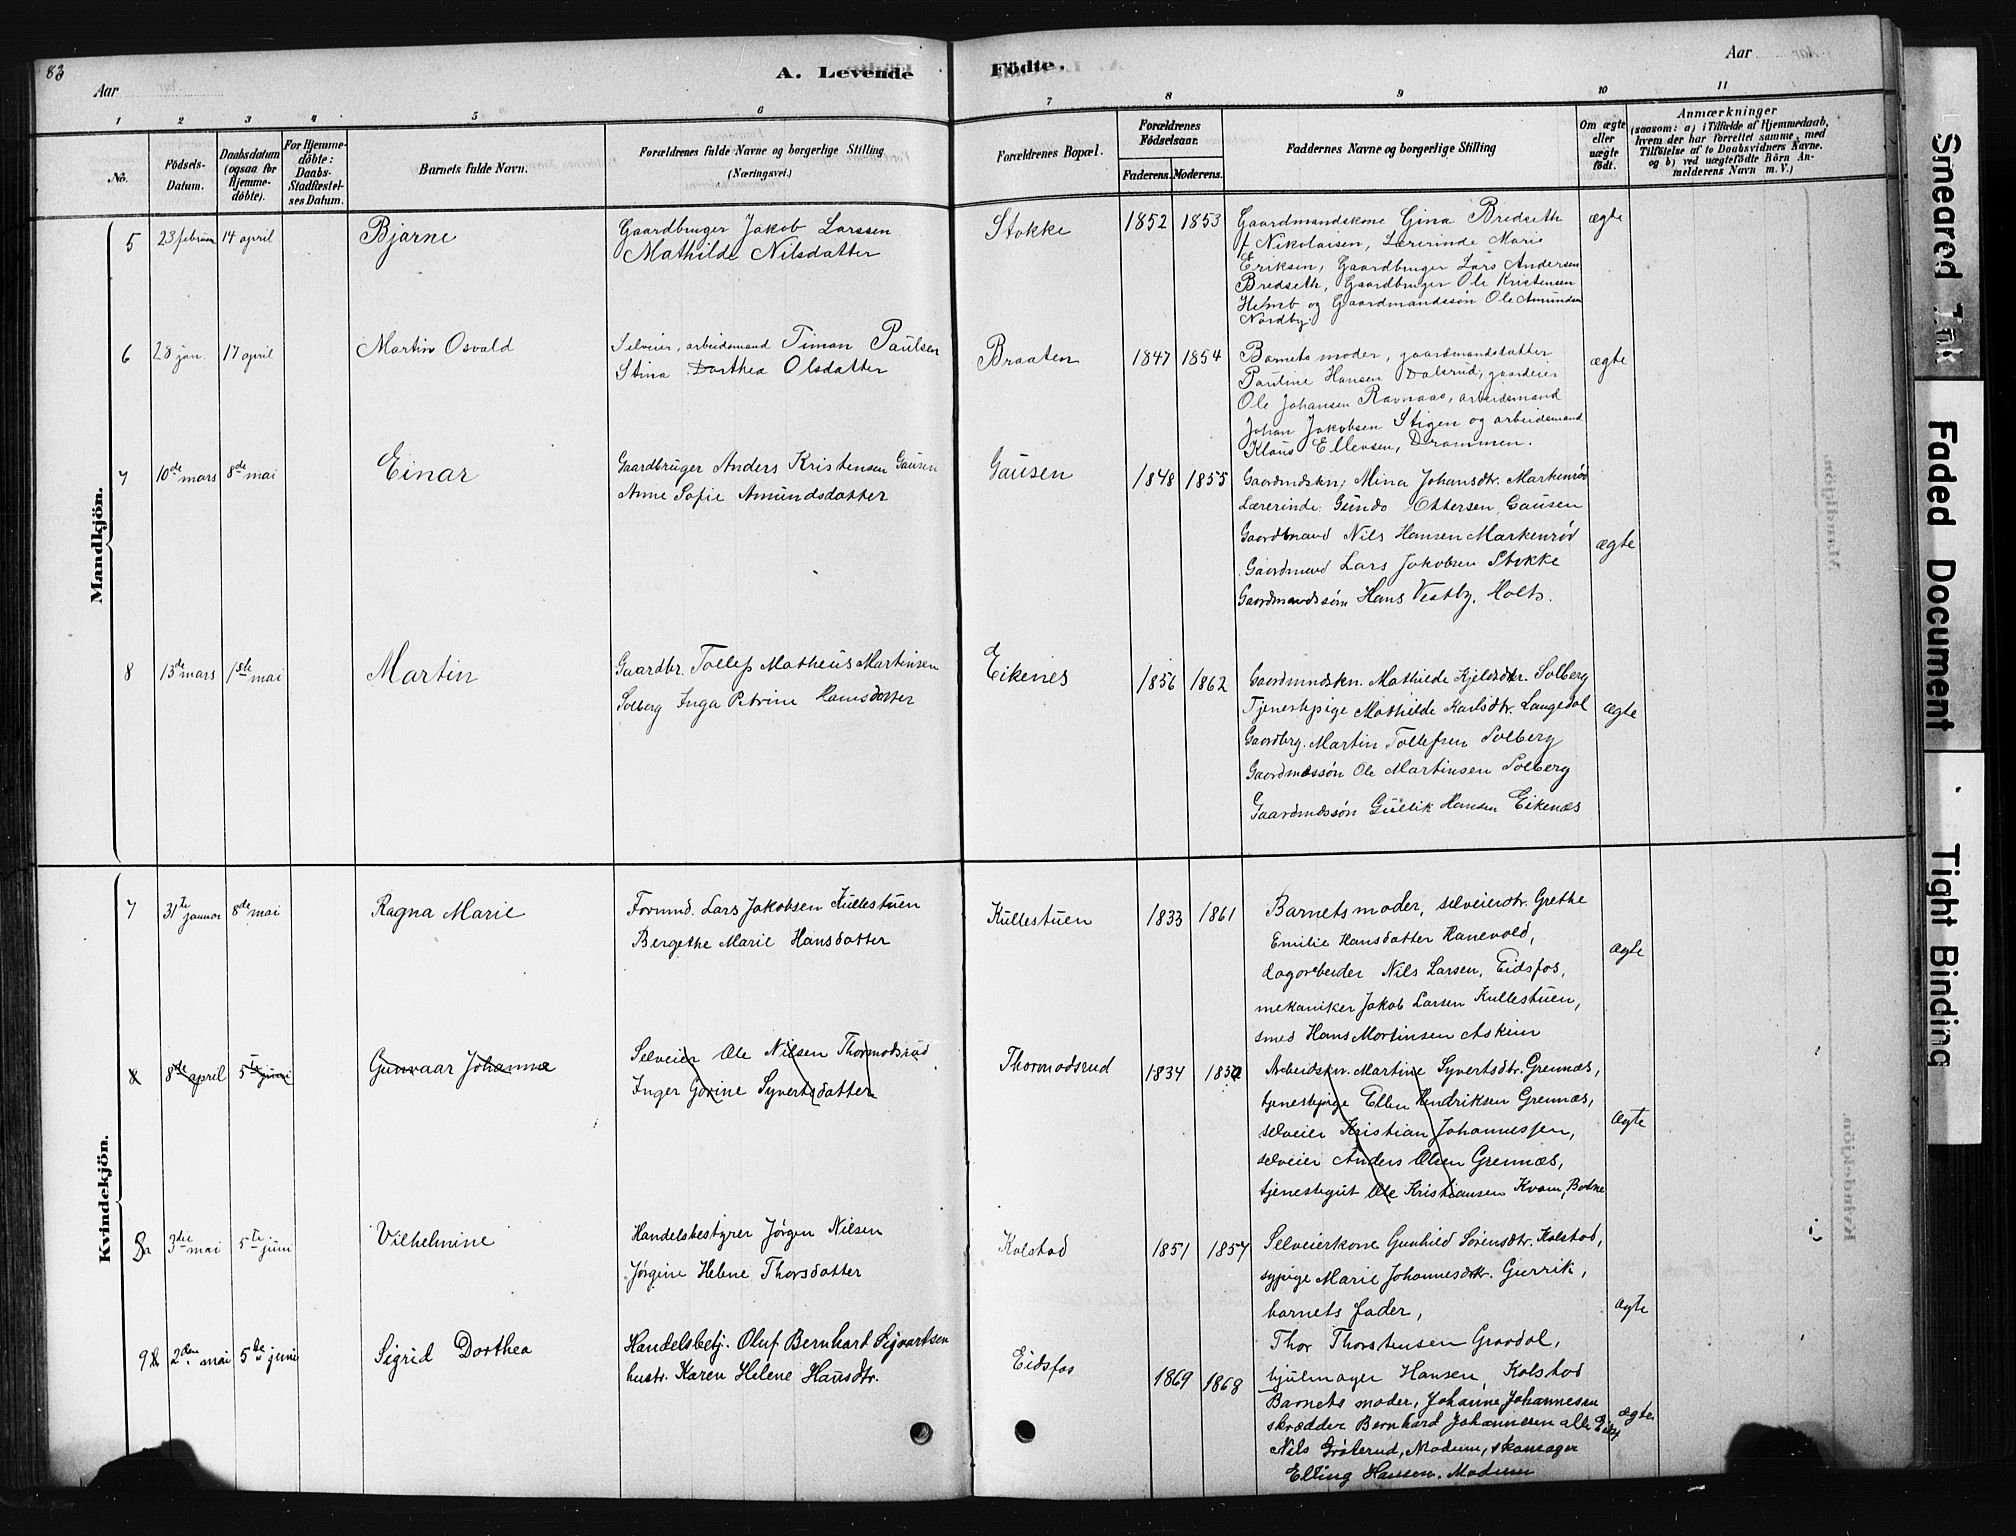 83
Aar
A. Levende
Födte.
Aar
1 2 3 4 5 6 7 8 9 10 11
No.
Födsels-Datum.
Daabsdatum (ogsaa for Hjemme-döbte).
For Hjemme-döbte: Daabs-Stadfæstel-ses Datum.
Barnets fulde Navn.
Forældrenes fulde Navne og borgerlige Stilling (Næringsvei.)
Forældrenes Bopæl.
Forældrenes Födselsaar.
Faderens. Moderens.
Faddernes Navne og borgerlige Stilling
Om ægte eller uægte födt.
Anmærkninger
(saasom: a) i Tilfælde af Hjemmedaab, hvem der har forrettet samme, med Tilföielse af to Daabsvidners Navne. og b) ved uægtefödte Börn An-melderens Navn m. V.)
Mandkjön.
5 23 februar 14 april Bjarne
Gaardbruger Jakob Larssen
Mathilde Nilsdatter
Stokke 1852 1853
Gaardmandskone Gina Bredseth
f Nikolaisen, Lærerinde Marie
Eriksen, Gaardbruger Lars Andersen
Bredseth, Gaardbruger Ole Kristensen
og Gaardmandssön Ole Amundsen
Nordby.
ægte
6 28 jan. 17 april Martin Osvald
Selveier, arbeidsmand Timan Paulsen
Stina Dorthea Olsdatter
Braaten 1847 1854
Barnets moder, gaardmandsdatter
Pauline Hansen Dalsrud, gaardeier
Ole Johansen Ravnaas, arbeidsmand
Johan Jakobsen Stigen og arbeidsmand
Klaus Ellevsen, Drammen.
ægte
7 10de mars 8de mai Einar
Gaardbruger Anders Kristensen Gausen
Anne Sofie Amundsdatter
Gausen 1848 1855
Gaardmdskn, Mina Johansdtr. Markenrød
Lærerinde Gunda Ottersen Gausen
Gaardmand Nils Hansen Markenrød
Gaardmand Lars Jakobsen Stokke
Gaardmandssøn Hans Vestby, Holts.
ægte
8 13de mars 1ste mai Martin
Gaardbr. Tollef Matheus Martinsen
Solberg Inga Petrine Hansdatter
Eikenes 1856 1862
Gaardmandskn. Mathilde Kjeldsdtr. Solberg
Tjenestepige Mathilde Karlsdtr. Langedal
Gaardbrg. Martin Tollefsen Solberg
Gaardmdssøn Ole Martinsen Solberg
Gaardmdssøn Gullik Hansen Eikenæs
ægte
Kvindekjön.
7 31te januar 8de mai Ragna Marie
Formnd. Lars Jakobsen Kullestuen
Bergethe Marie Hansdatter
Kullestuen 1833 1861
Barnets moder, selveierdtr. Grethe
Emilie Hansdatter Hanevold,
dagarbeider Nils Larsen, Eidsfos,
mekaniker Jakob Larsen Kullestuen,
smed Hans Martinsen Askim
ægte
8 8de april 5te juni Gunvaar Johanne
Selveier Ole Nilsen Thormodsrud
Inger Gorine Syvertsdatter
Thormodsrud 1834
Arbeidskn. Martine Syvertsdtr. Grennæs,
tjenestepige Ellen Hendriksen Grennæs,
selveier Kristian Johannessen,
selveier Anders Olsen Grennæs,
tjenestegut Ole Kristiansen Kvam, Botne
ægte
8a 3die mai 5te juni Vilhelmine
Handelsbestyrer Jørgen Nilsen
Jørgine Helene Thorsdatter
Kolstad 1851 1857
Selveierkone Gunhild Sørensdtr. Kolstad,
sypige Marie Johannesdtr. Gurrik,
barnets fader,
Thor Thorstensen Graadal,
hjulmager Hansen, Kolstad
ægte
9 2den mai 5te juni Sigrid Dorthea
Handelsbetj. Oluf Bernhard Sigvartsen
hustr. Karen Helene Hansdtr.
Eidsfos 1869 1868
Barnets moder, Johanne Johannessen
skrædder Bernhard Johannesen alle
Nils Grøterud, Modum, skomager
Elling Hansen, Modum
ægte
Smeared Ink
Faded Document
Tight Binding